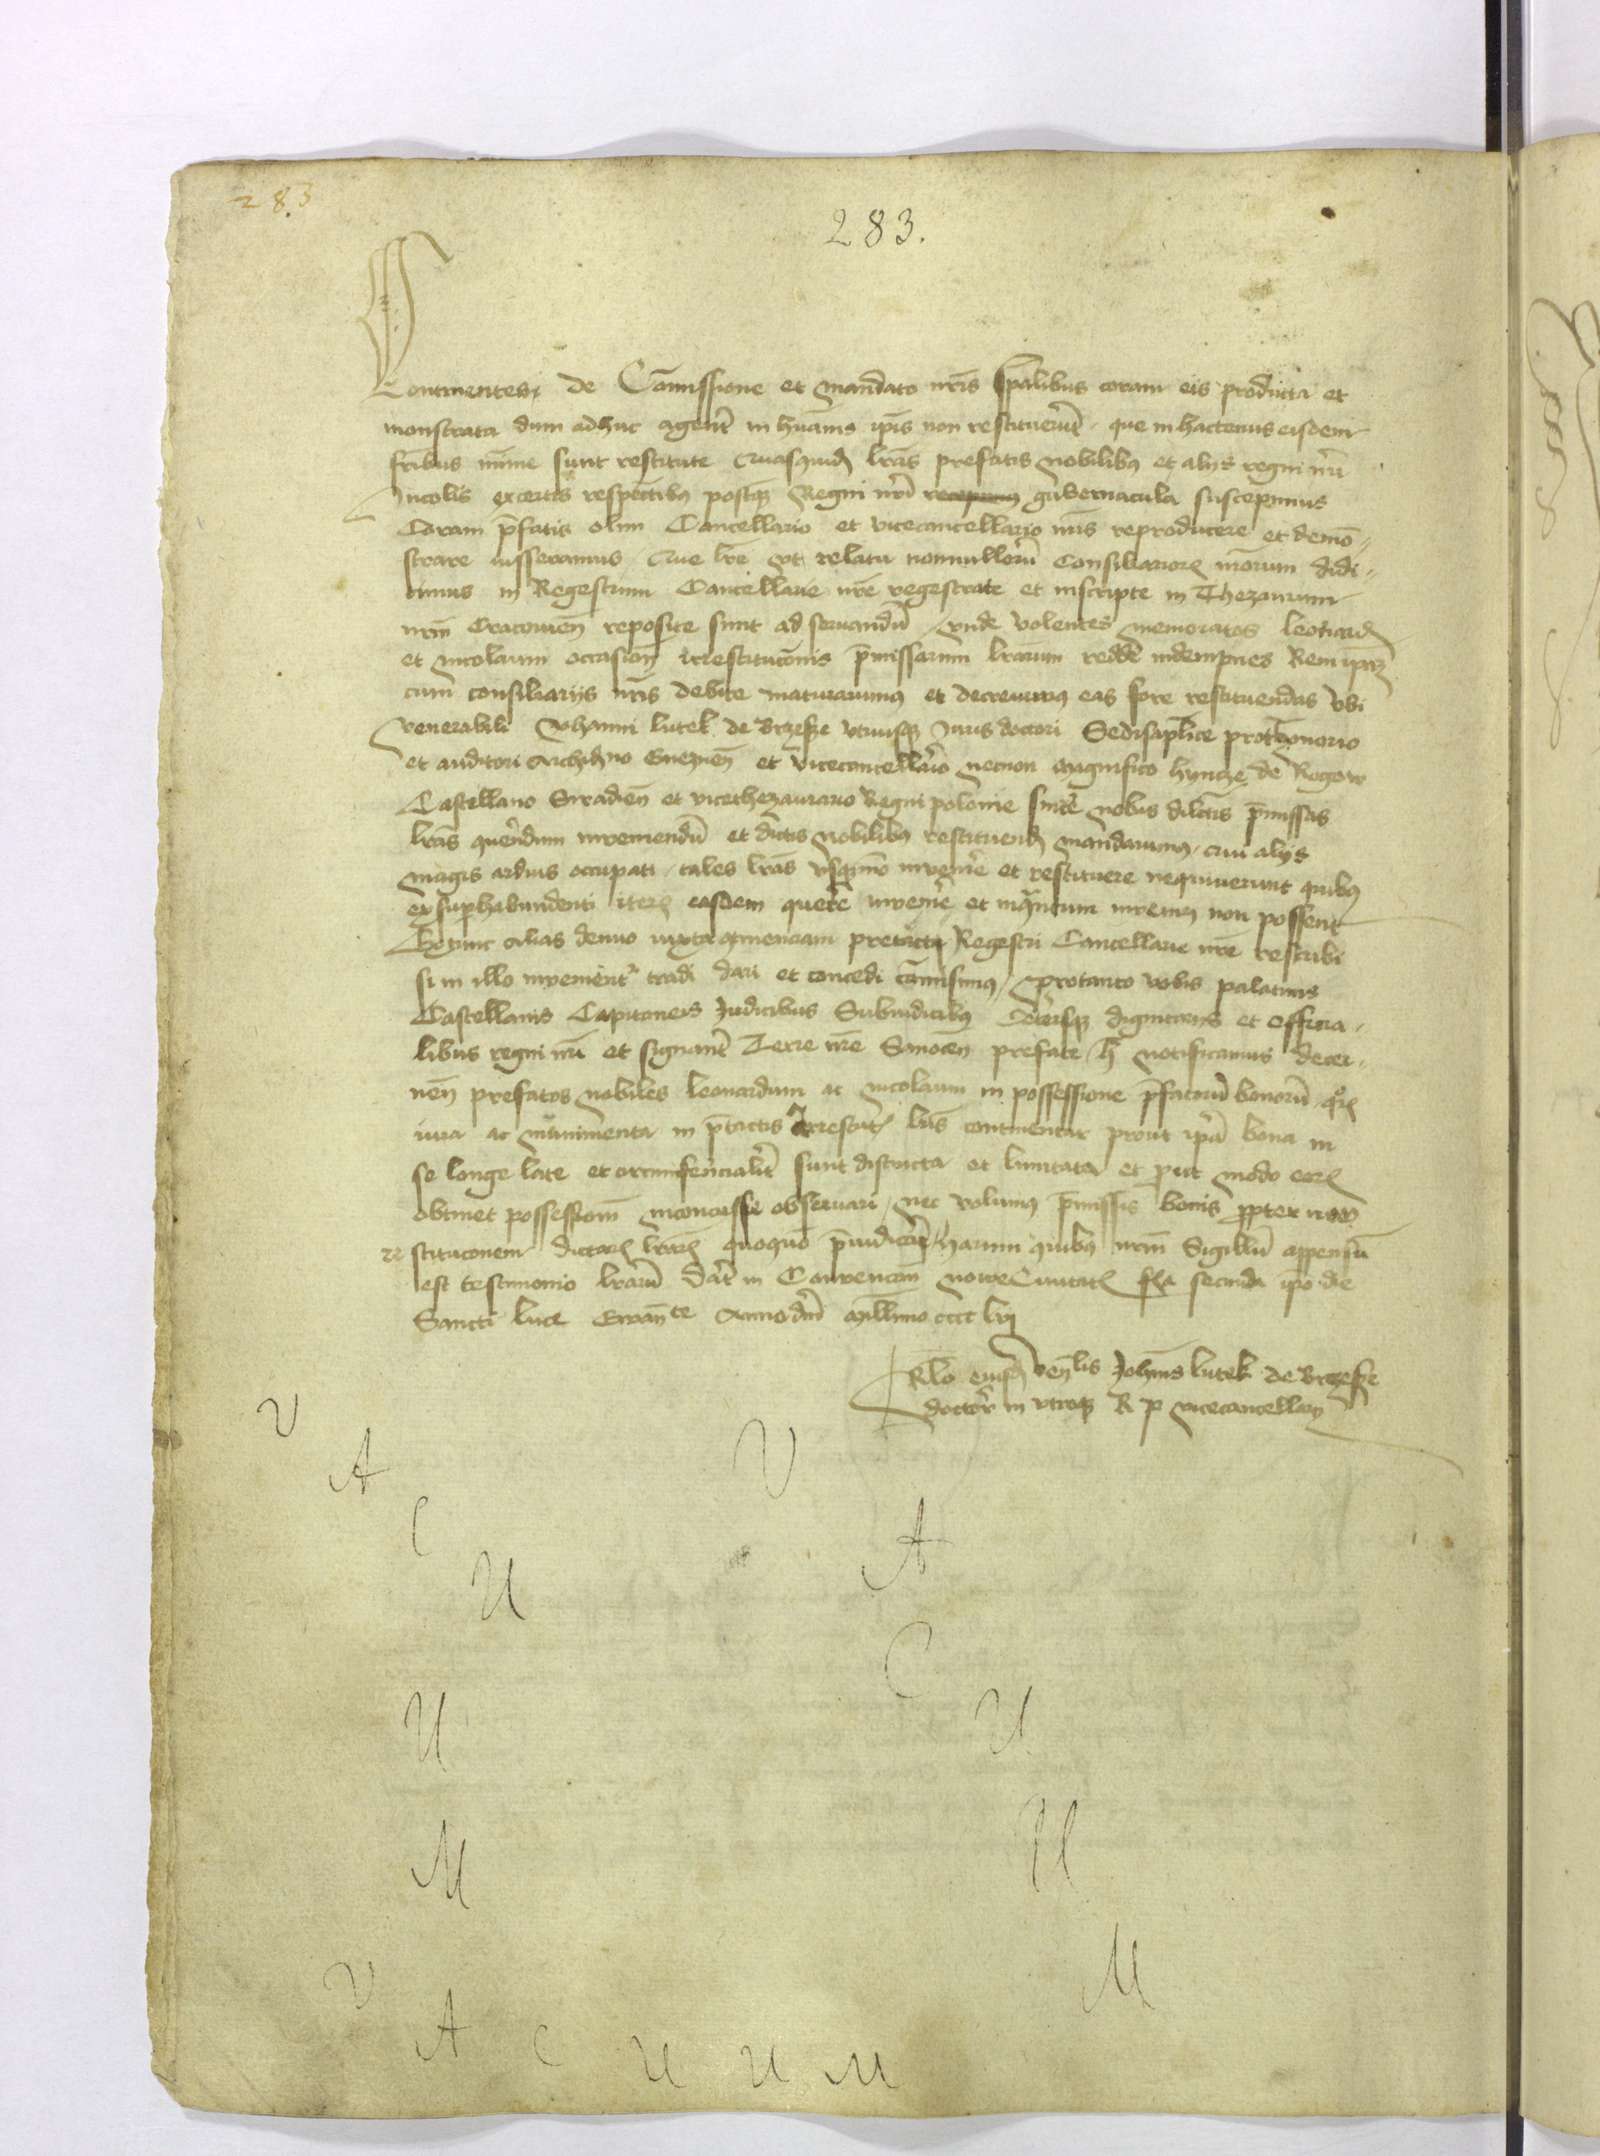 283
283.
Continentem de Com̄issione et mandato nr̄is spālibus coram eis producta et
monstrata dum adhuc agerēt in hūanis ipīs non restituerūt que in hactenus eisdem
frībus mīme sunt restitute Quasquid lrās prefatis nobilibus et alys regni nrī
Incolis ex certis respectibus postqz Regni nrī gubernacula suscepimus
Coram p̄fatis olim Cancellario et vicecancellario nrīs reproducere et demō-
strare iusseramus Que lrē vt relatu nonnullorū Consiliarior nrōrum didi-
cimus in Regestrum Cancellarie nrē regestrate et inscripte in Thezaurum
nrm̄ Cracovien̄ reposite sunt ad seruandū vnde volentes memoratos leonard
et Nicolaum occasion̄ irrestitucōnis p̄missarum lrārum reddē indempnes Rem ipāz
cum consiliarijs nrīs debite maturauimus et decreuimus eas fore restituendas vbi
venerabili Iohanni lutek de Brzesze vtriusqz Iuris doctori Sedis aplīce prothonorio
et auditori Archidno Gneznen̄ et vicecancellario necnon Magnifico hyncze de Rogow
Castellano Siradien̄ et vicethezaurario Regni polonie sincē nobis dilctīs p̄missas
lrās querendum inueniendū et dictis nobilibus restituend mandauimus, cum alys
magis arduis occupati tales lrās vsqmō inuenīre et restituere nequiuerunt quibus
ex suphabundenti iter easdem querē inuenīre et inquantum inuenīri non possent
Extunc alias denuo iuxta continenciam pretacti Regestri Cancellarie nrē rescribi
si in illo inuenient tradi dari et concedi com̄isimus, Protanto vobis palatinis
Castellanis Capitaneis Iudicibus Subiudicibus Ceterisqz dignitarijs et officia-
libus regni nrī et signant Terre nrē Sanocen̄ prefate h notificamus decer-
nen̄ prefatos nobiles leonardum ac nicolaum in possessione p̄fatorū bonorū qr
iura ac munimenta in p̄tactis irrestit lrīs continentur prout ipā bona in
se longe late et circumferencialīt sunt distincta et limitata et put modo eor
obtinet possessionē inconcusse obseruari nec volumus p̄missis bonis propter non
restitucōnem dictar lrār quoquo p̄iudicari harum quibus nrm̄ Sigillū appensū
est testimonio lrārū Dat in Conuencōn Noue Ciuitat fia secunda ipō die
Sancti luce Ewante Anno dnī Millmo cccc lvi
Rlo eiusd venlis Johnīs lutek de Brzesze
doctor in vtroqz R p vicecancellary
V
A
C
U
U
M
V
A
C
U
U
M
V A C U U M